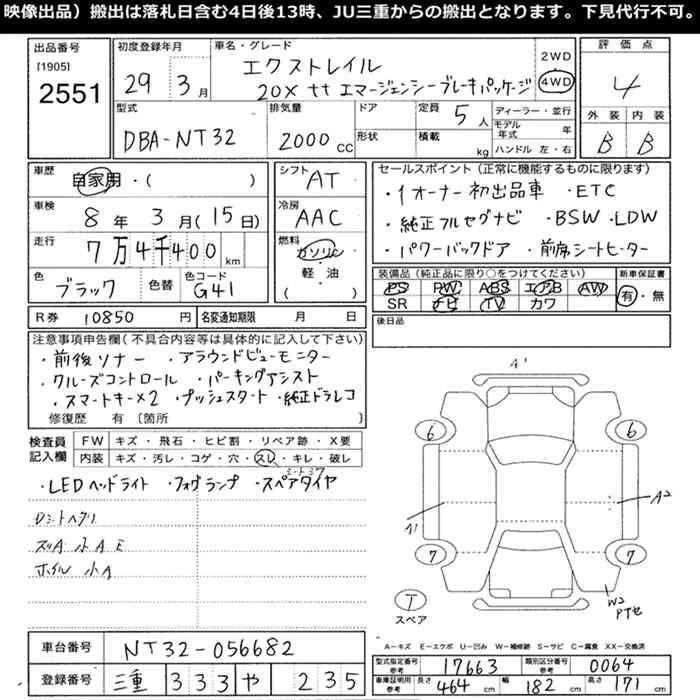 映像出品）搬出は落札日含む4日後13時、JU三重からの搬出となります。下見代行不可。
出品番号
[1905]
2551
初度登録年月
29 年 3 月
車名・グレード
エクストレイル
20X tt エマージェンシーブレーキパッケージ
2WD
4WD
評価点
4
外装 内装
B B
型式
DBA-NT32
排気量
2000 CC
ドア
形状
定員
5 人
積載
kg
ディーラー・並行
モデル年式 年
ハンドル 左・右
車歴
自家用・( )
車検
8 年 3 月 (15 日)
走行
7万4千400 km
色
ブラック
色替
色コード
G41
シフト
AT
冷房
AAC
燃料
ガソリン
軽・油
( )
セールスポイント（正常に機能するものに限ります）
・1オーナー 初出品車 ・ETC
・純正フルセグナビ ・BSW・LDW
・パワーバックドア ・前席シートヒーター
装備品（純正品に限り○をつけてください）
PS PW ABS エアB AW
SR ナビ TV カワ
新車保証書
有・無
R券 10850 円
名変通知期限 月 日
後日品
注意事項申告欄（不具合内容等は具体的に記入して下さい）
・前後ソナー ・アラウンドビューモニター
・クルーズコントロール ・パーキングアシスト
・スマートキー×2 ・プッシュスタート ・純正ドラレコ
修復歴 有〔箇所
検査員記入欄
FW キズ・飛石・ヒビ割・リペア跡・X要
内装 キズ・汚レ・コゲ・穴・スレ・キレ・破レ
シートシワ
・LEDヘッドライト ・フォグランプ ・スペアタイヤ
Dシートヘタリ
スリA 小A E
ホイル 小A
A1
6 6
A1 A2
7 7
T
スペア
W2
PTセ
A－キズ E－エクボ U－凹み W－補修跡 S－サビ C－腐食 XX－交換済
車台番号 NT32-056682
登録番号 三重 333 や 235
型式指定番号 参考 17663
類別区分番号 参考 0064
車庫証明用 参考 長さ 464 cm 幅 182 cm 高さ 171 cm